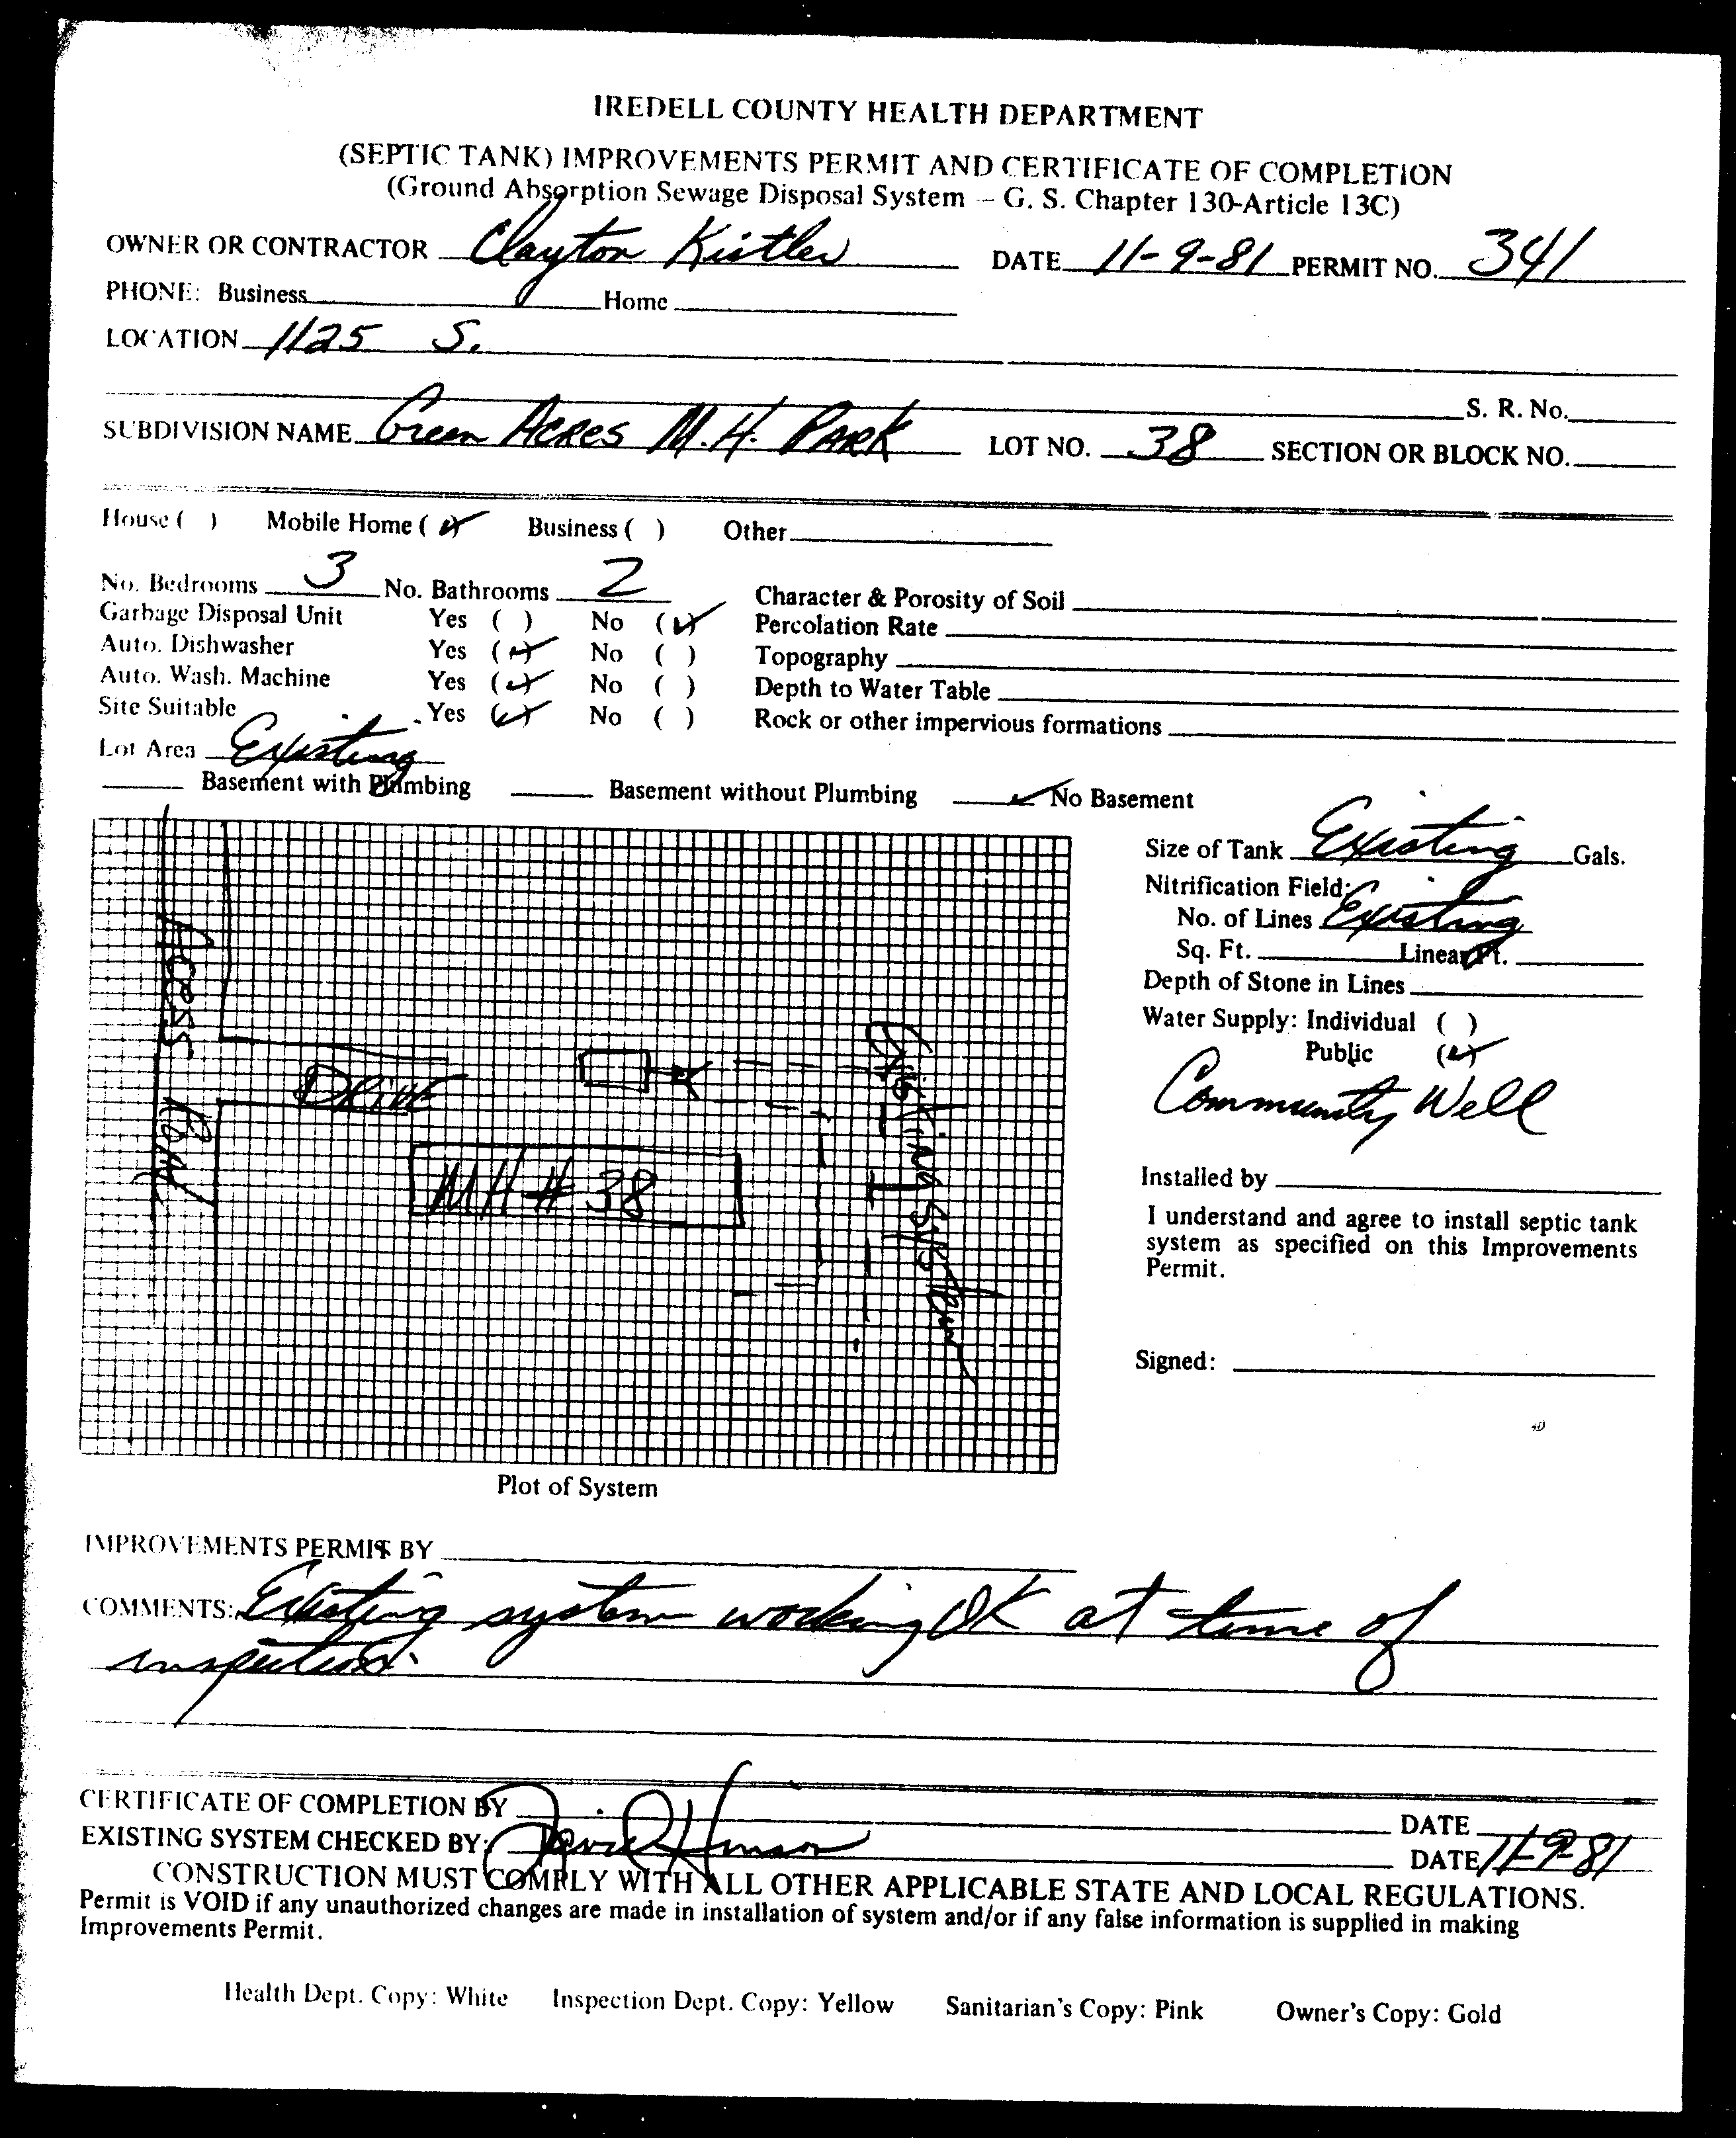 IREDELL COUNTY HEALTH DEPARTMENT
(SEPTIC TANK) IMPROVEMENTS PERMIT AND CERTIFICATE OF COMPLETION
(Ground Absorption Sewage Disposal System – G. S. Chapter 130-Article 13C)
OWNER OR CONTRACTOR Clayton Kistler DATE 11-9-81 PERMIT NO. 341
PHONE: Business Home
LOCATION 1125 S.
S. R. No.
SUBDIVISION NAME Green Acres M.H. Park LOT NO. 38 SECTION OR BLOCK NO.
House ( ) Mobile Home (✓) Business ( ) Other
No. Bedrooms 3 No. Bathrooms 2 Character & Porosity of Soil
Garbage Disposal Unit Yes ( ) No (✓) Percolation Rate
Auto. Dishwasher Yes (✓) No ( ) Topography
Auto. Wash. Machine Yes (✓) No ( ) Depth to Water Table
Site Suitable Yes (✓) No ( ) Rock or other impervious formations
Lot Area Existing
Basement with Plumbing Basement without Plumbing ✓ No Basement
Size of Tank Existing Gals.
Nitrification Field:
No. of Lines Existing
Sq. Ft. Linear Ft.
Depth of Stone in Lines
Water Supply: Individual ( )
Public (✓)
Community Well
Installed by
I understand and agree to install septic tank
system as specified on this Improvements
Permit.
Signed:
Access Road
Drive
MH # 38
Existing System
Plot of System
IMPROVEMENTS PERMIT BY
COMMENTS: Existing system working OK at time of
inspection.
CERTIFICATE OF COMPLETION BY DATE
EXISTING SYSTEM CHECKED BY: David Hinson DATE 11-9-81
CONSTRUCTION MUST COMPLY WITH ALL OTHER APPLICABLE STATE AND LOCAL REGULATIONS.
Permit is VOID if any unauthorized changes are made in installation of system and/or if any false information is supplied in making
Improvements Permit.
Health Dept. Copy: White Inspection Dept. Copy: Yellow Sanitarian's Copy: Pink Owner's Copy: Gold